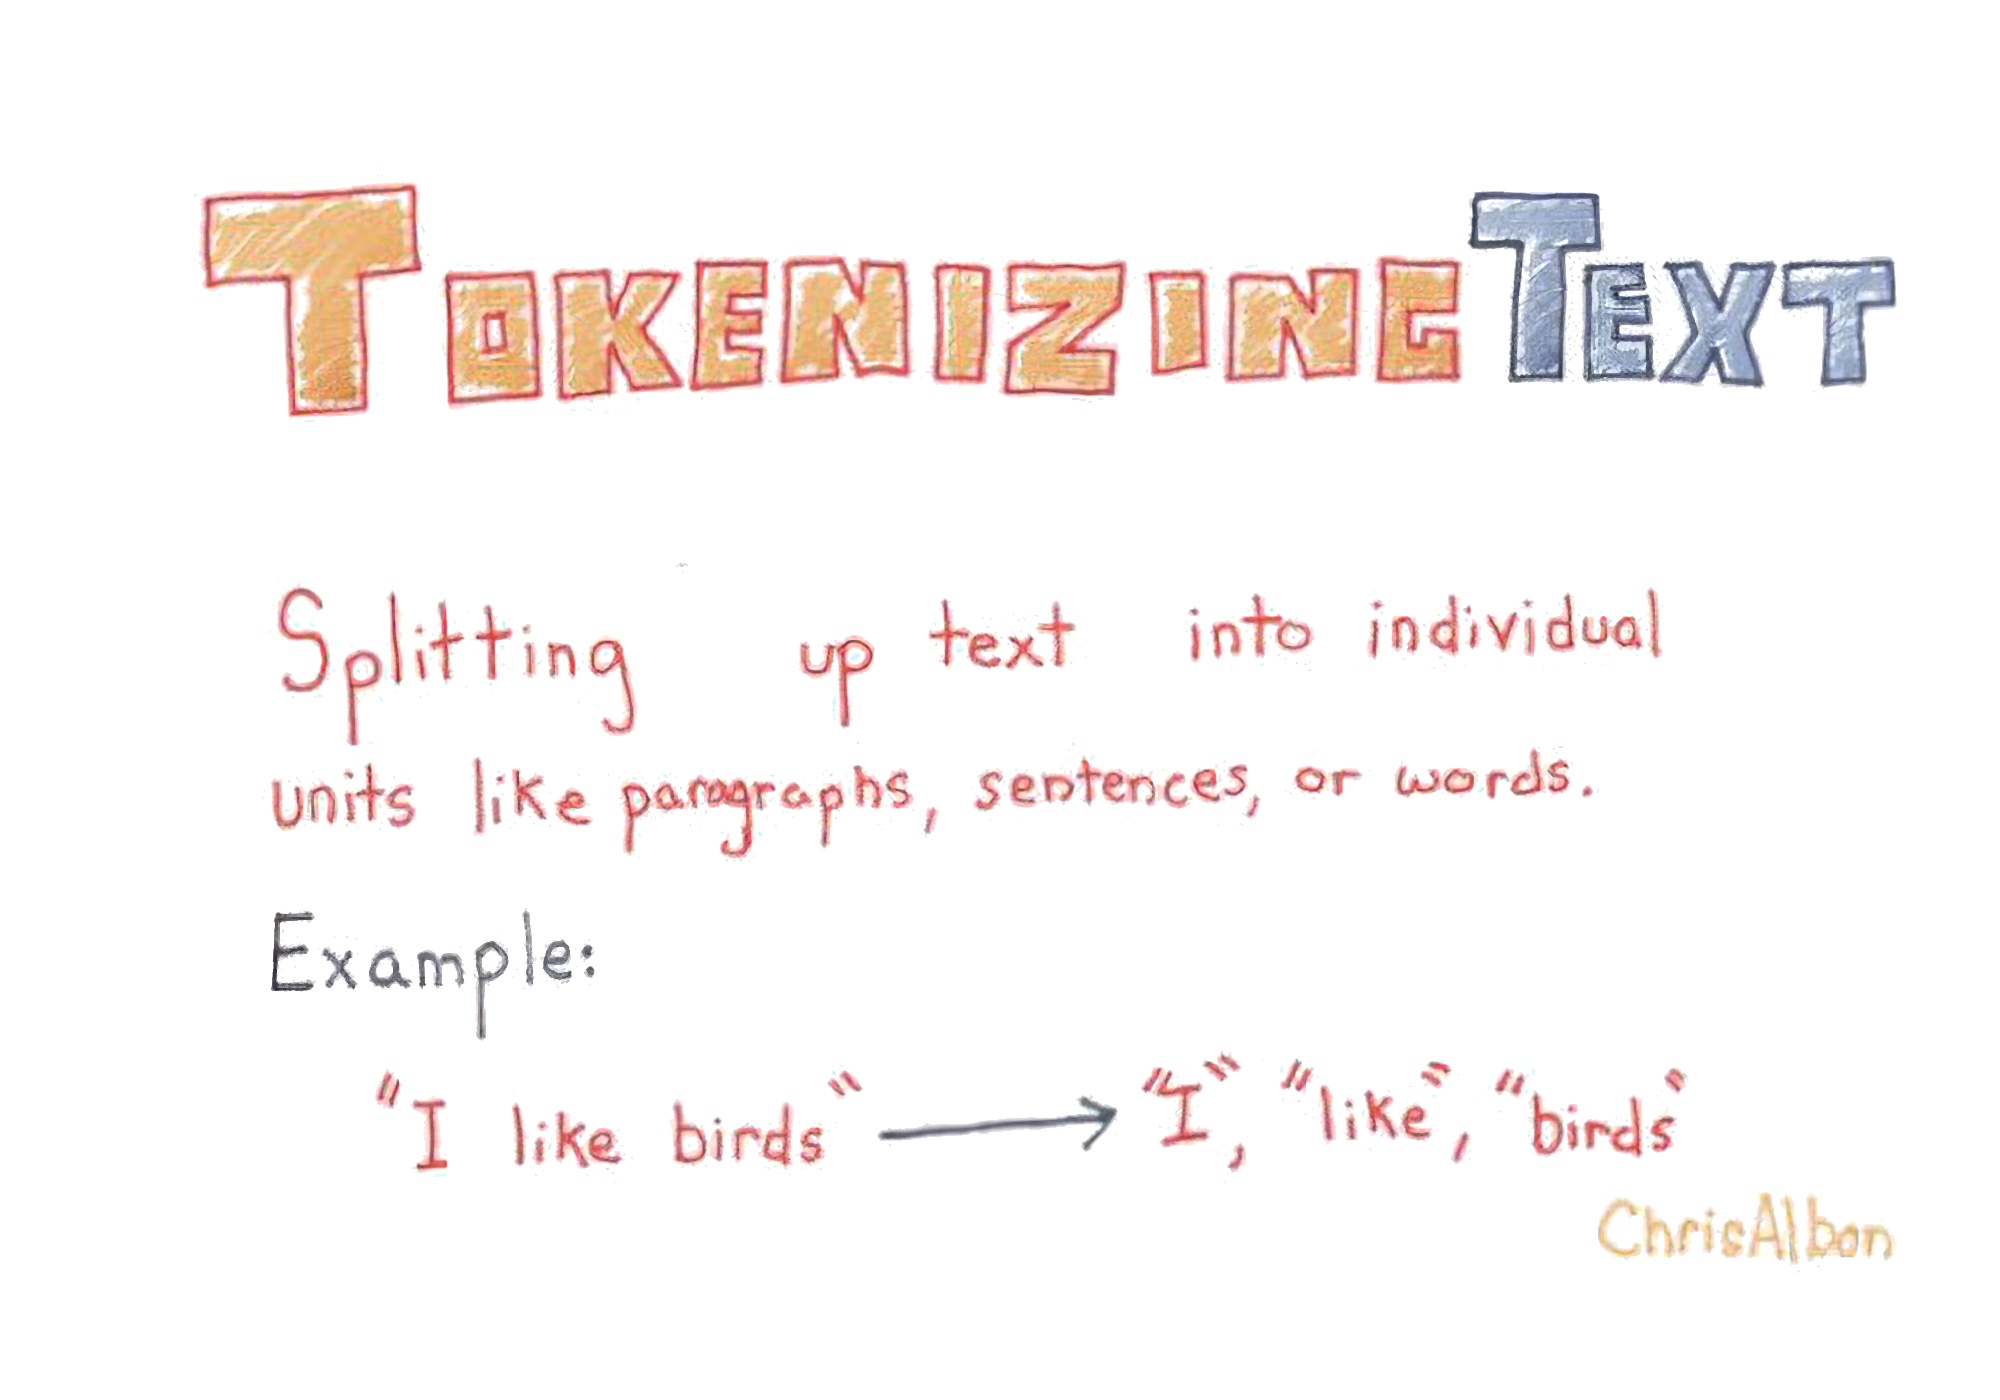 TOKENIZING TEXT
Splitting up text into individual
units like paragraphs, sentences, or words.
Example:
"I like birds" → "I", "like", "birds"
ChrisAlbon